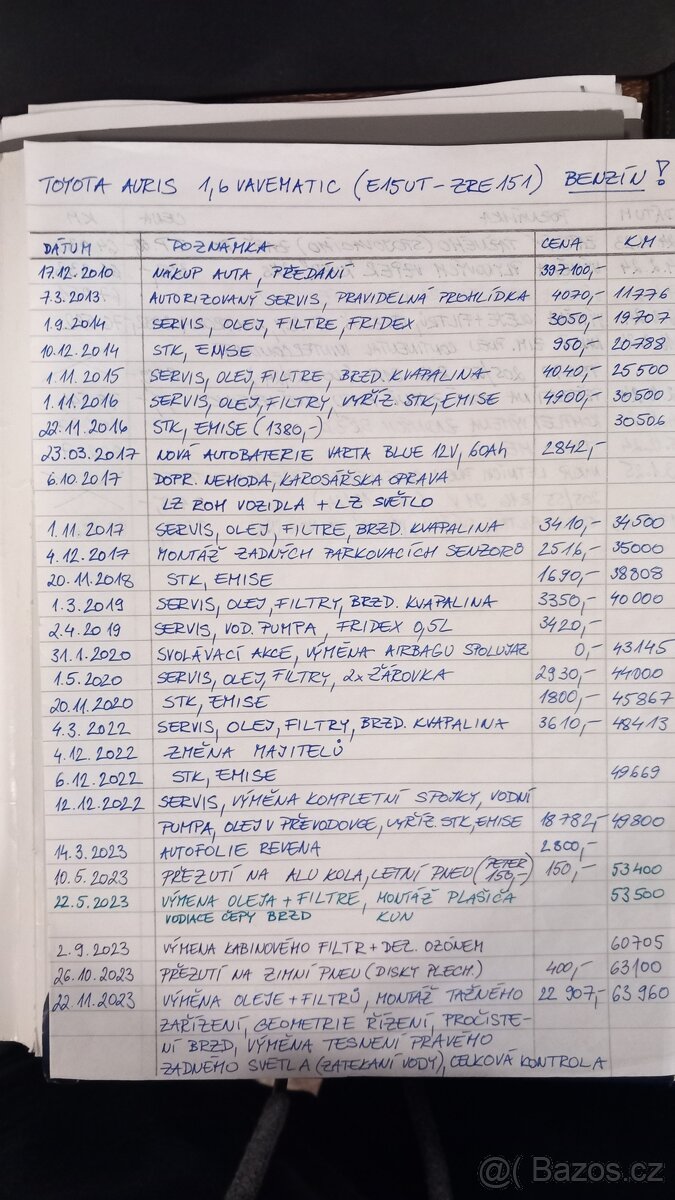 TOYOTA AURIS 1,6 VAVEMATIC (E15UT-ZRE151) BENZÍN!
DÁTUM POZNÁMKA CENA KM
17.12.2010 NÁKUP AUTA, PŘEDÁNÍ 397100,-
7.3.2013 AUTORIZOVANÝ SERVIS, PRAVIDELNÁ PROHLÍDKA 4070,- 11776
1.9.2014 SERVIS, OLEJ, FILTRE, FRIDEX 3050,- 19707
10.12.2014 STK, EMISE 950,- 20788
1.11.2015 SERVIS, OLEJ, FILTRE, BRZD. KVAPALINA 4040,- 25500
1.11.2016 SERVIS, OLEJ, FILTRY, VYŘÍZ. STK, EMISE 4900,- 30500
22.11.2016 STK, EMISE (1380,-) 30506
23.03.2017 NOVÁ AUTOBATERIE VARTA BLUE 12V, 60Ah 2842,-
6.10.2017 DOPR. NEHODA, KAROSÁŘSKA OPRAVA
LZ ROH VOZIDLA + LZ SVĚTLO
1.11.2017 SERVIS, OLEJ, FILTRE, BRZD. KVAPALINA 3410,- 34500
4.12.2017 MONTÁŽ ZADNÝCH PARKOVACÍCH SENZORŮ 2516,- 35000
20.11.2018 STK, EMISE 1690,- 38808
1.3.2019 SERVIS, OLEJ, FILTRY, BRZD. KVAPALINA 3350,- 40000
2.4.2019 SERVIS, VOD. PUMPA, FRIDEX 0,5L 3420,-
31.1.2020 SVOLÁVACÍ AKCE, VÝMĚNA AIRBAGU SPOLUJAZ 0,- 43145
1.5.2020 SERVIS, OLEJ, FILTRY, 2x ŽÁROVKA 2930,- 44000
20.11.2020 STK, EMISE 1800,- 45867
4.3.2022 SERVIS, OLEJ, FILTRY, BRZD. KVAPALINA 3610,- 48413
4.12.2022 ZMĚNA MAJITELŮ
6.12.2022 STK, EMISE 49669
12.12.2022 SERVIS, VÝMĚNA KOMPLETNÍ SPOJKY, VODNÍ
PUMPA, OLEJ V PŘEVODOVCE, VYŘÍZ. STK, EMISE 18782,- 49800
14.3.2023 AUTOFOLIE REVENA 2800,-
10.5.2023 PŘEZUTÍ NA ALU KOLA, LETNÍ PNEU (PETER 150,-) 150,- 53400
22.5.2023 VÝMENA OLEJA + FILTRE, MONTÁŽ PLAŠIČA 53500
VODIACE ČEPY BRZD KUN
2.9.2023 VÝMENA KABINOVÉHO FILTR + DEZ. OZÓNEM 60705
26.10.2023 PŘEZUTÍ NA ZIMNÍ PNEU (DISKY PLECH.) 400,- 63100
22.11.2023 VÝMĚNA OLEJE + FILTRŮ, MONTÁŽ TAŽNÉHO 22 907,- 63 960
ZAŘÍZENÍ, GEOMETRIE ŘÍZENÍ, PROČISTE-
NÍ BRZD, VÝMĚNA TESNENÍ PRAVÉHO
ZADNÉHO SVETLA (ZATEKANÍ VODY), CELKOVÁ KONTROLA
@( Bazos.cz